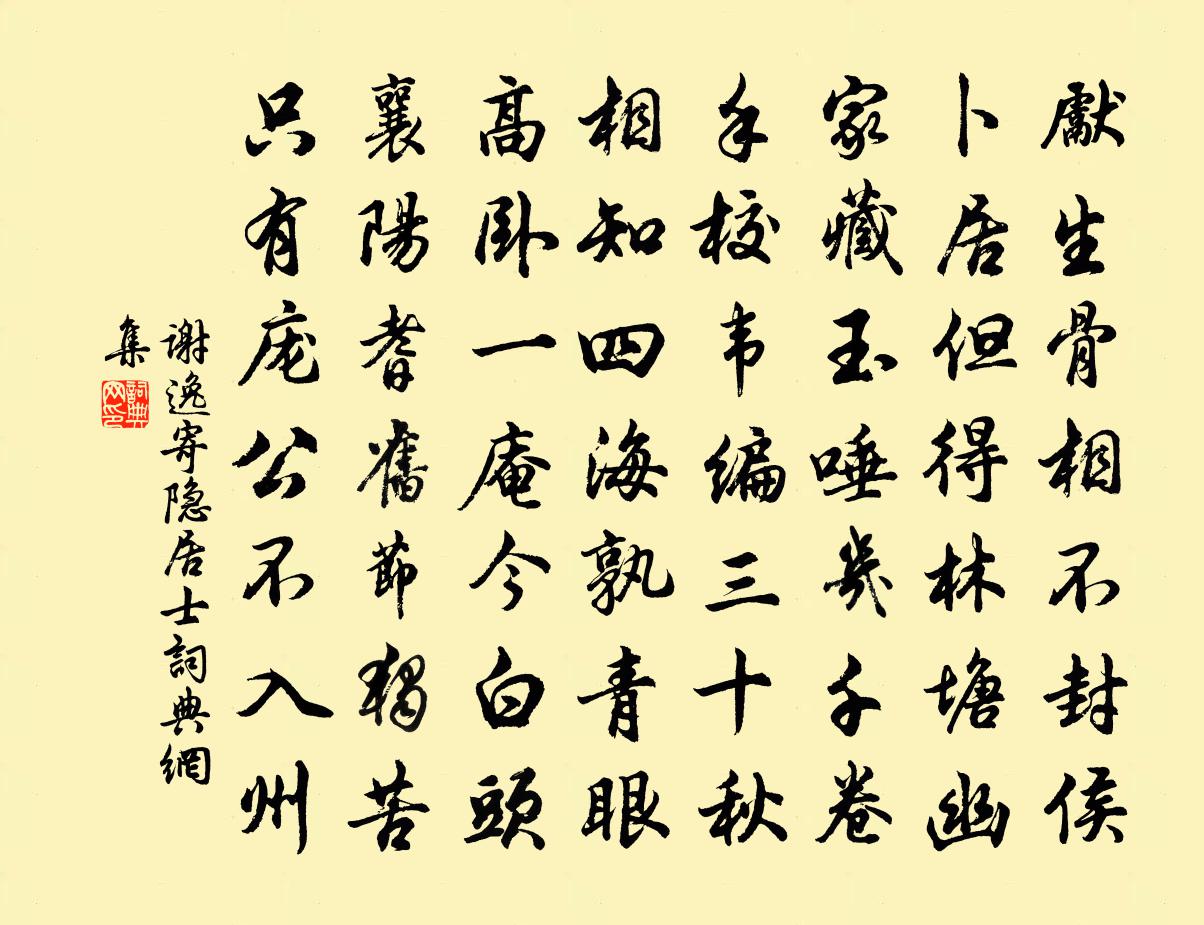 獻生骨相不封侯
卜居但得林塘幽
家藏玉唾幾千卷
手校韦编三十秋
相知四海孰青眼
高卧一庵今白頭
襄陽耆舊節獨苦
只有庞公不入州
谢逸寄隐居士詞典網
集
詞典网印